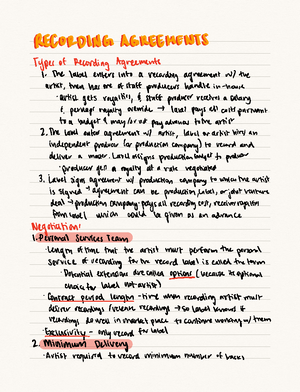 RECORDING AGREEMENTS
Types of Recording Agreements
1. The label enters into a recording agreement w/ the
artist, then has one of staff producers handle in-house
- artist gets royalties, & staff producer receives a salary
& perhaps royalty override → label pays all costs pursuant
to a budget & may/or as pay advance to the artist
2. The label enter agreement w/ artist, label or artist hires an
independent producer (or production company) to record and
deliver a master. Label assigns production budget to producer
· producer gets a royalty at a rate negotiated
3. Label signs agreement w/ production company to which the artist
is signed → agreement can be production, label, or joint venture
deal → production company pays all recording cost, receives royalties
from label which could be given as an advance
Negotiation:
1. Personal Services Term
· Length of time that the artist must perform the personal
service of recording for the record label is called the term
· Potential extensions are called options (because its optional
choice for label not artist)
· Contract period length - time when recording artist must
deliver recordings/release recordings → so label knows if
recordings do well in market place to continue working w/ them
· Exclusivity - only record for label
2. Minimum Delivery
· Artist required to record minimum number of tracks